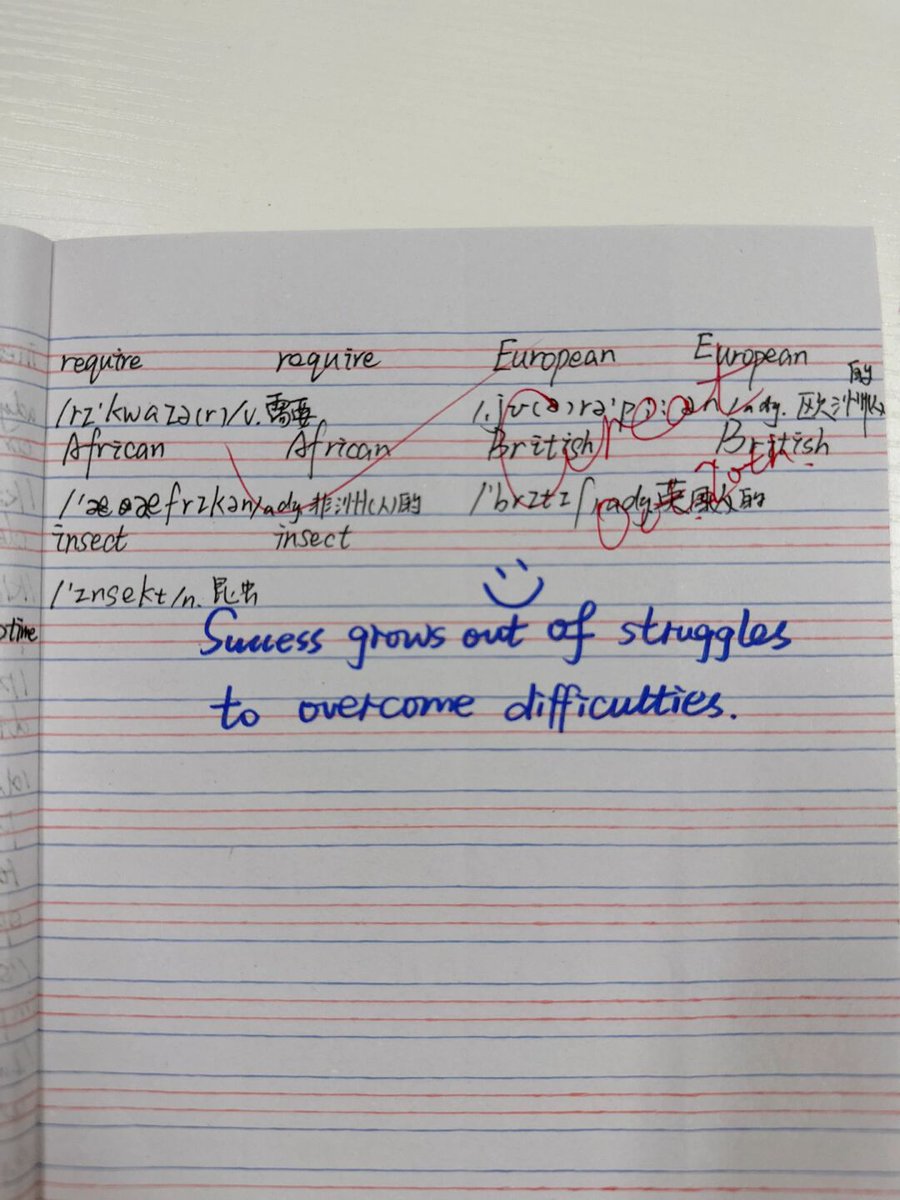 require require European European
/rɪ'kwaɪə(r)/v.需要 /ˌjʊ(ə)rə'pi:ən/adj.欧洲(人)的
African African British British
/'æfrɪkən/adj.非洲(人)的 /'brɪtɪʃ/adj.英国人的
insect insect
/'ɪnsekt/n.昆虫
time
Success grows out of struggles
to overcome difficulties.